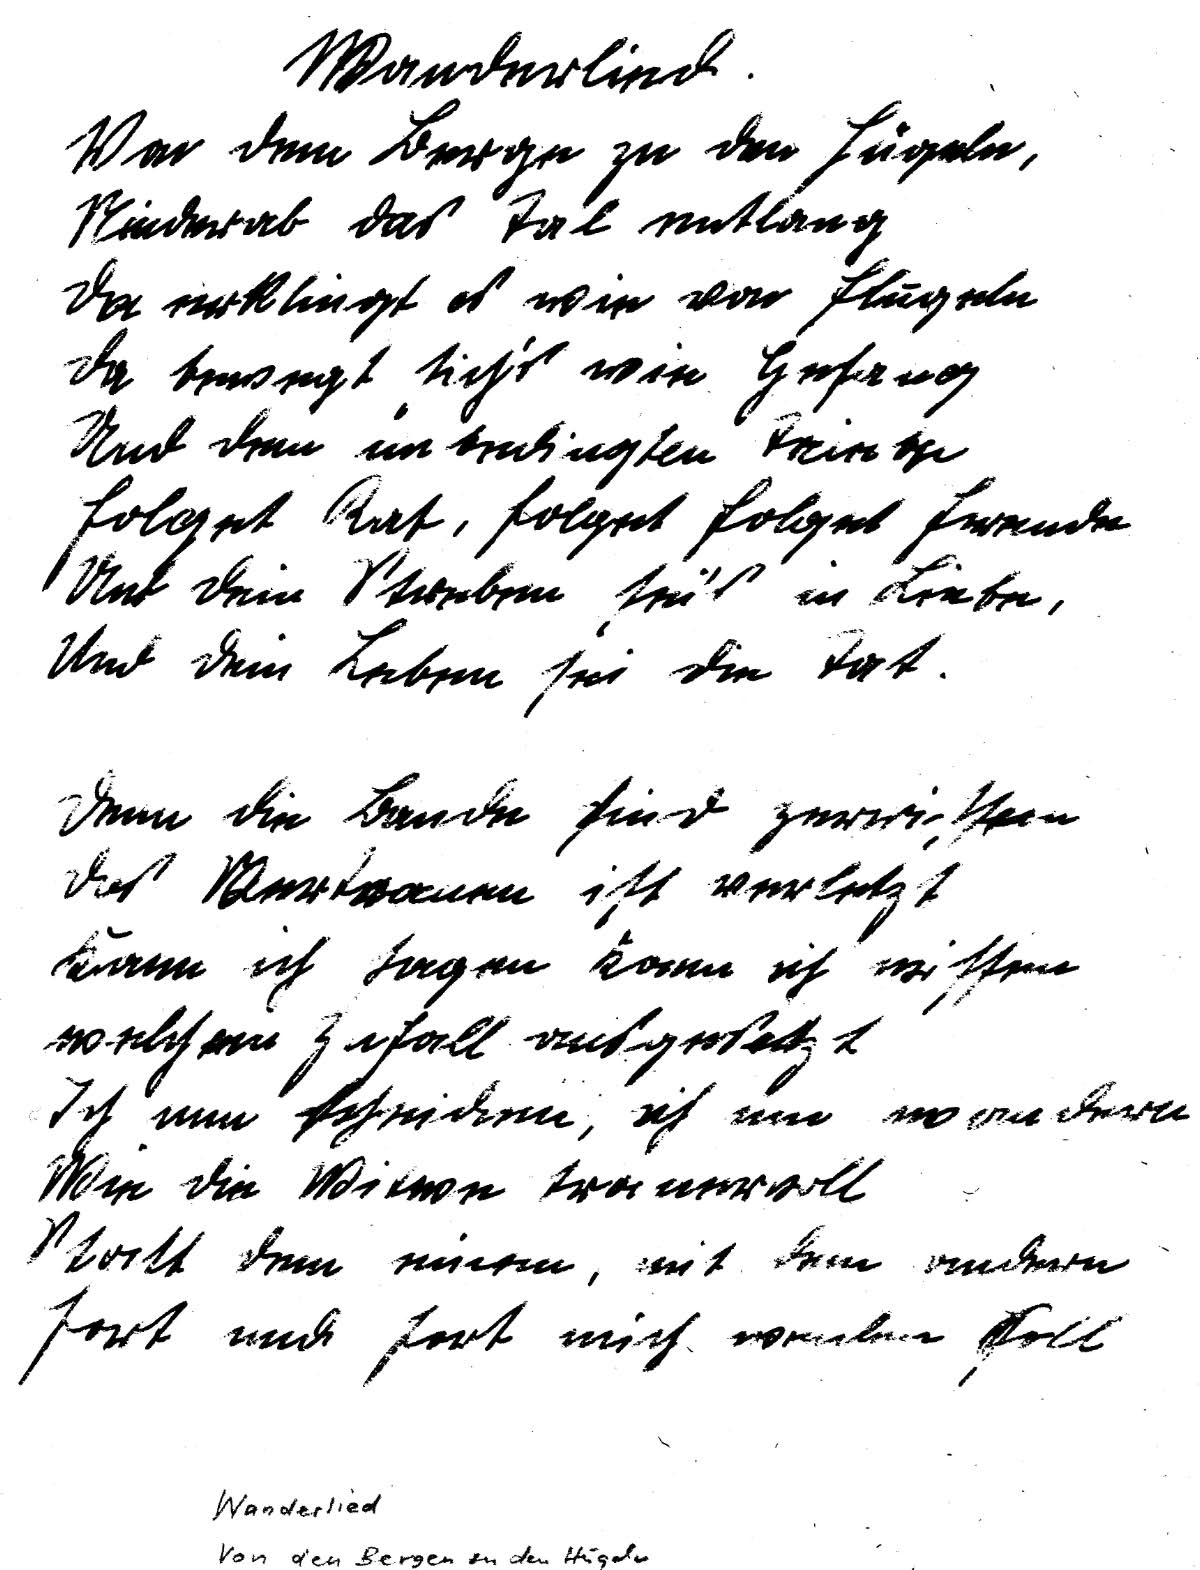 Wanderlied.
Von dem Berge zu den Hügeln,
Niederab das Tal entlang
Da erklingt es wie von Flügeln
Da bewegt sich's wie Gesang
Und dem unbedingten Triebe
folget Rat, folget folget Freude
Und dein Streben sei's in Liebe,
Und dein Leben sei die Tat.
Denn die Bande sind zerrissen
Das Vertrauen ist verletzt
Kann ich sagen kann ich wissen
welchem Zufall ausgesetzt
Ich nun scheiden, ich nun wandern
Wie die Witwe trauervoll
Statt dem einem, mit dem andern
fort und fort mich wenden soll
Wanderlied
Von den Bergen zu den Hügeln